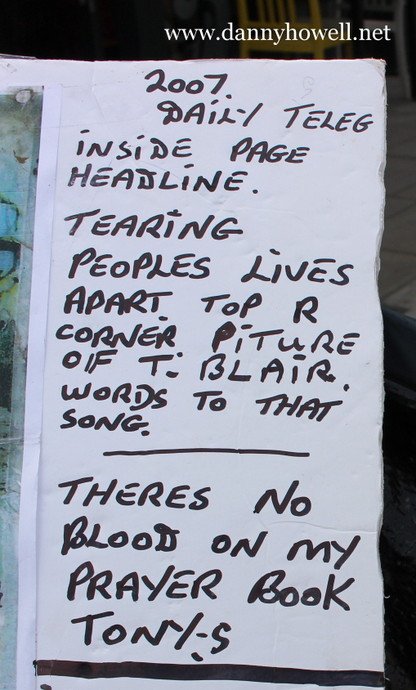 www.dannyhowell.net
2007.
DAILY TELEG
INSIDE PAGE
HEADLINE.
TEARING
PEOPLES LIVES
APART. TOP R
CORNER PITURE
OIF T. BLAIR.
WORDS TO THAT
SONG.
THERES NO
BLOOD ON MY
PRAYER BOOK
TONY-S